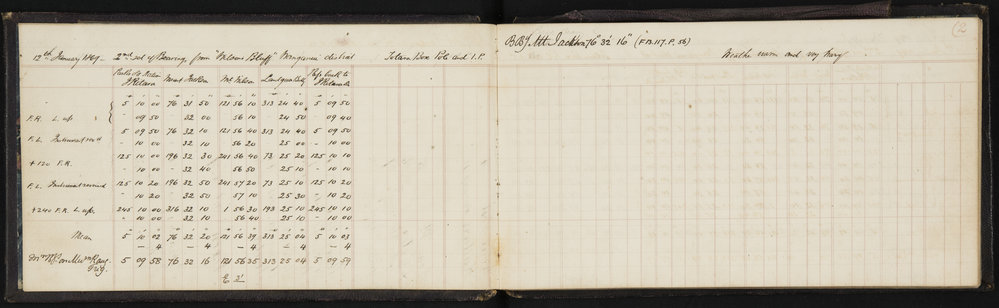 12
12th January 1869 2nd set of Bearings from Bluff" district Pole and I.P.
B.B of Mt. Jackson 76° 32' 16" (F.B. 117. P. 56)
Weather warm and very hazy
Mount Jackson Mt. Wilson back to
5 10 00 76 31 50 121 56 10 313 24 40 5 09 50
F.R. L. up " 09 50 32 00 56 10 - 24 50 - 09 40
5 09 50 76 32 10 121 56 40 313 24 40 5 09 50
F.L. - 10 00 32 10 56 20 25 00 - 10 00
125 10 00 196 32 30 241 56 40 73 25 20 125 10 10
+120 F.R. - 10 00 - 32 40 56 50 - 25 10 - 10 10
F.L. Instrument reversed 125 10 20 196 32 50 241 57 20 73 25 10 125 10 20
" 10 20 32 50 57 10 - 25 30 - 10 20
+240 F.R. L. up. 245 10 00 316 32 10 1 56 30 193 25 10 245 10 10
" 10 00 - 32 10 56 40 25 10 - 10 00
Mean 5 10 02 76 32 20 121 56 39 313 25 04 5 10 03
— 4 — 4 — 4 — 4
5 09 58 76 32 16 121 56 35 313 25 04 5 09 59
Trig.
E 3'